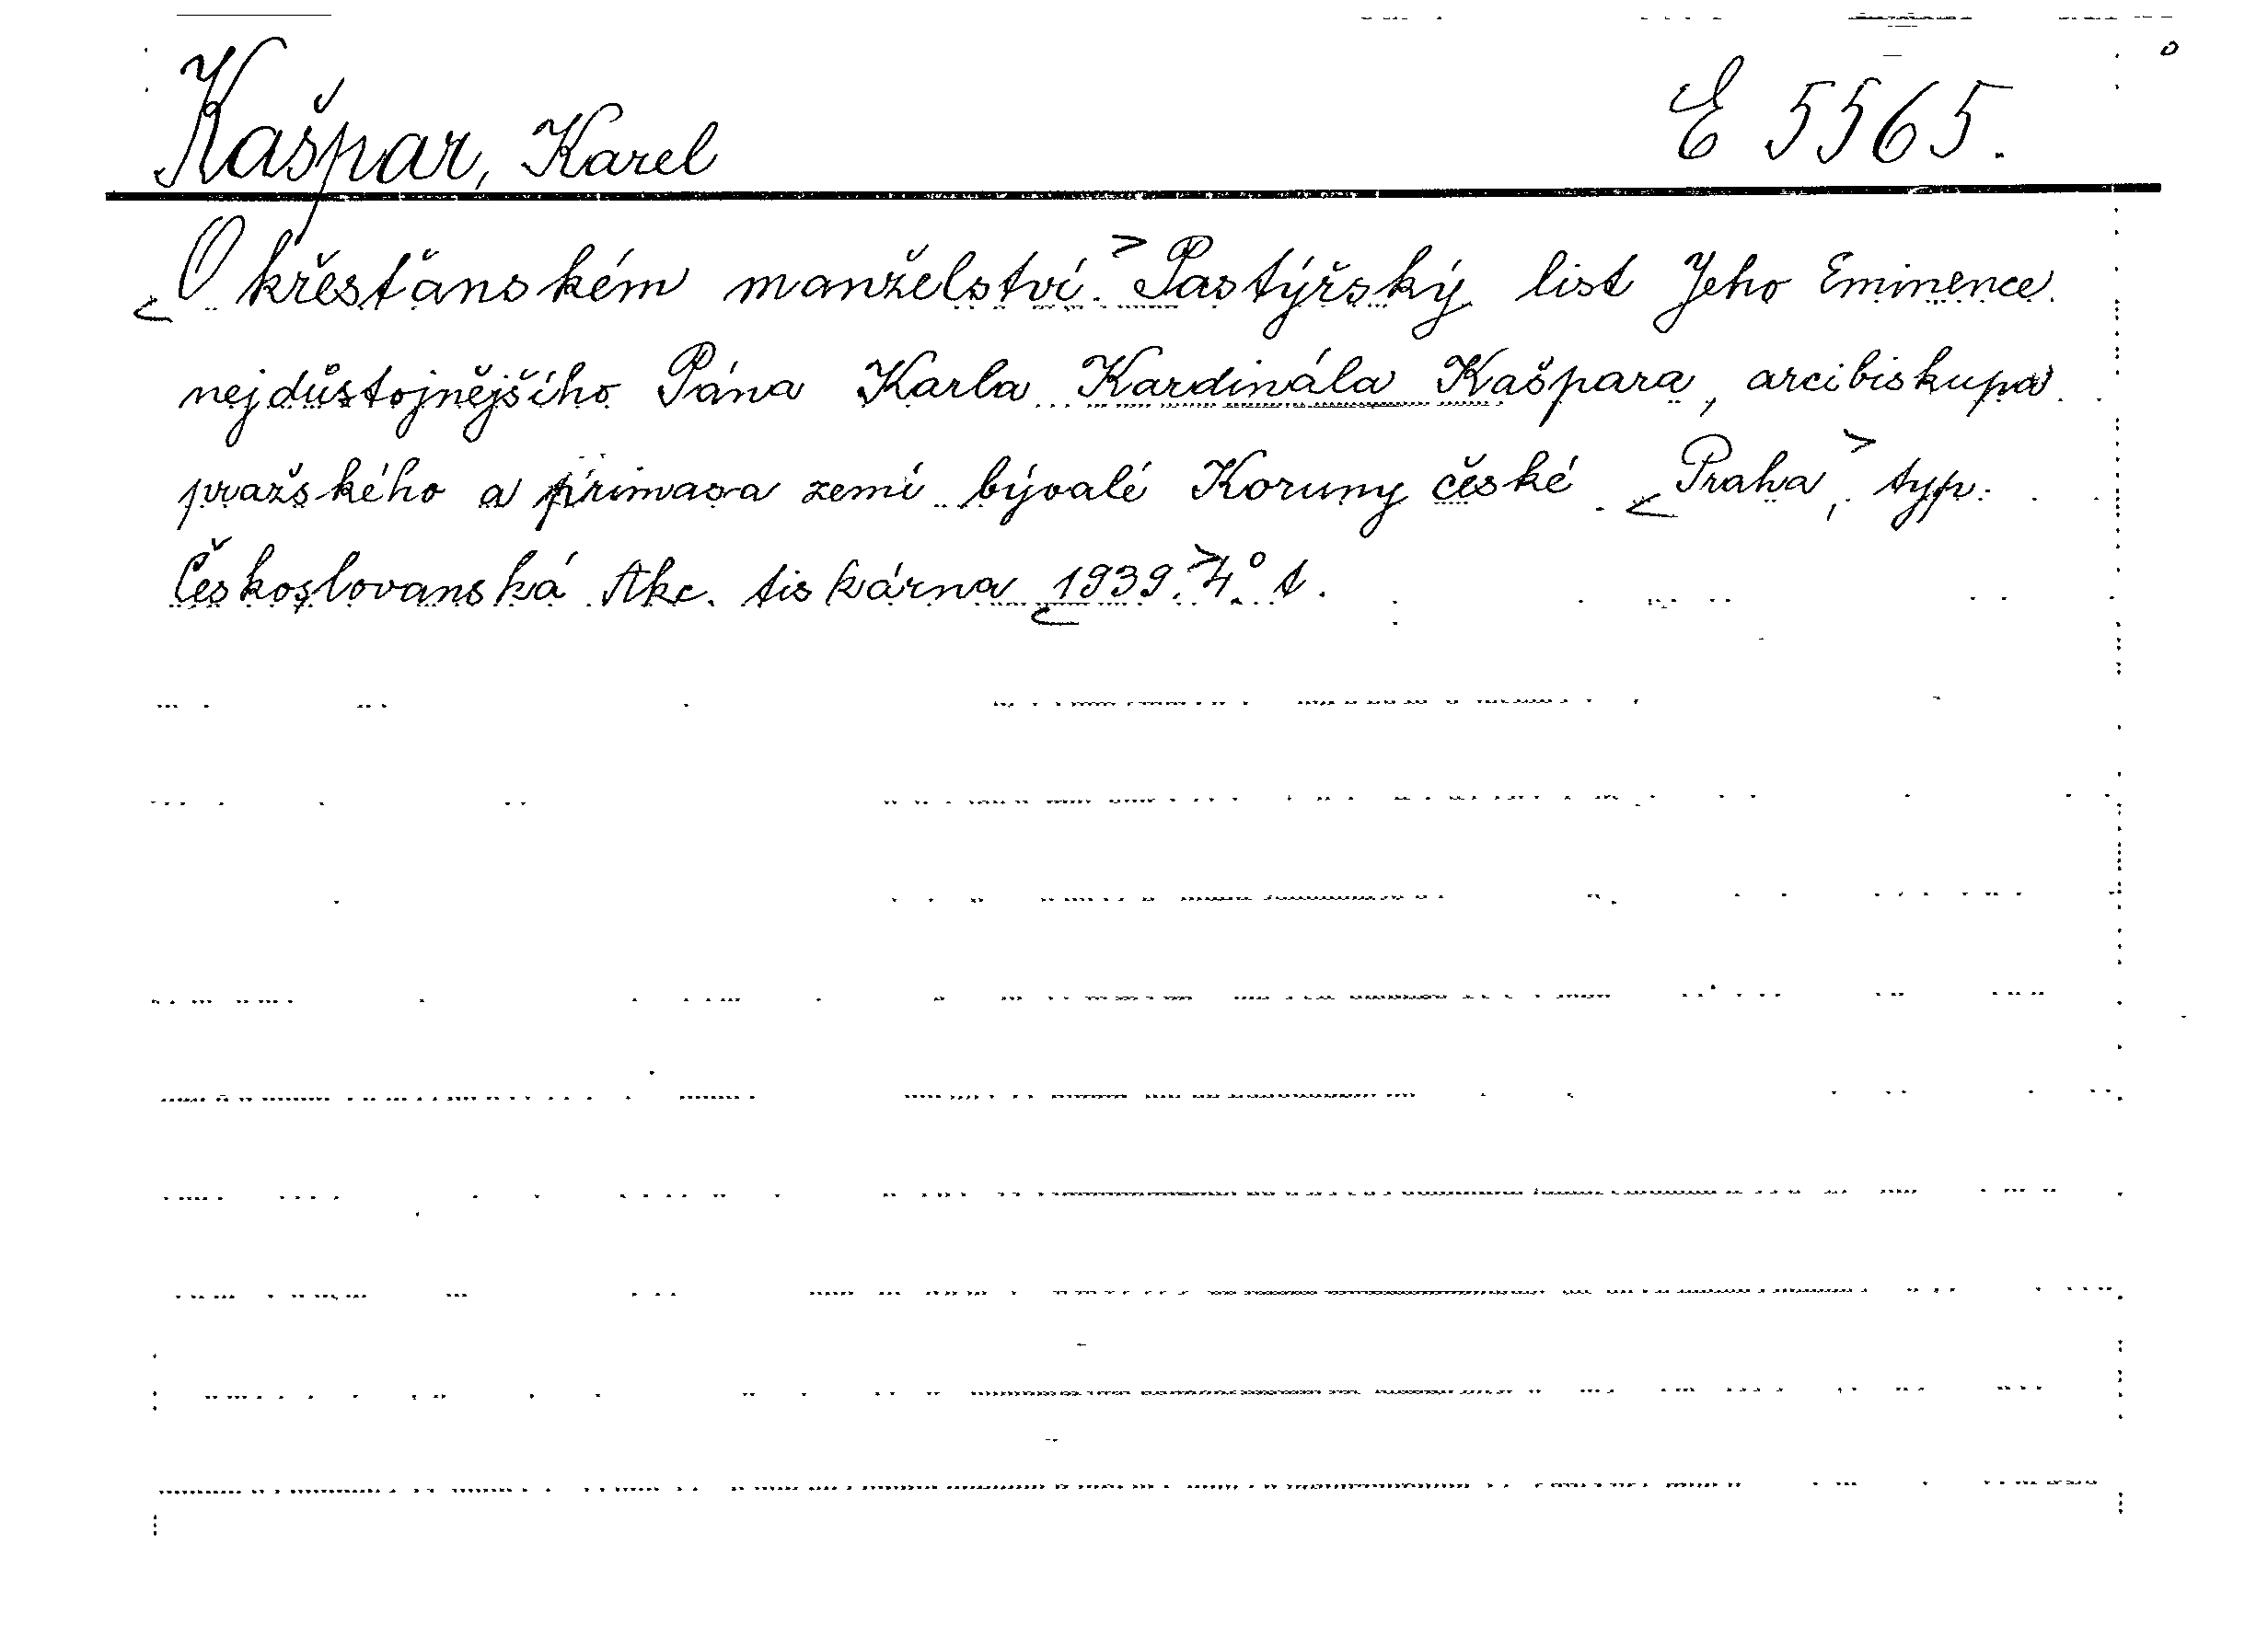 Kašpar, Karel
E 5565.
<O křesťanském manželství.> Pastýřský list Jeho Eminence
nejdůstojnějšího Pána Karla Kardinála Kašpara, arcibiskupa
pražského a primasa zemí bývalé Koruny české. <Praha,> typ.
Českoslovanská Akc. tiskárna <1939.> 4° t.